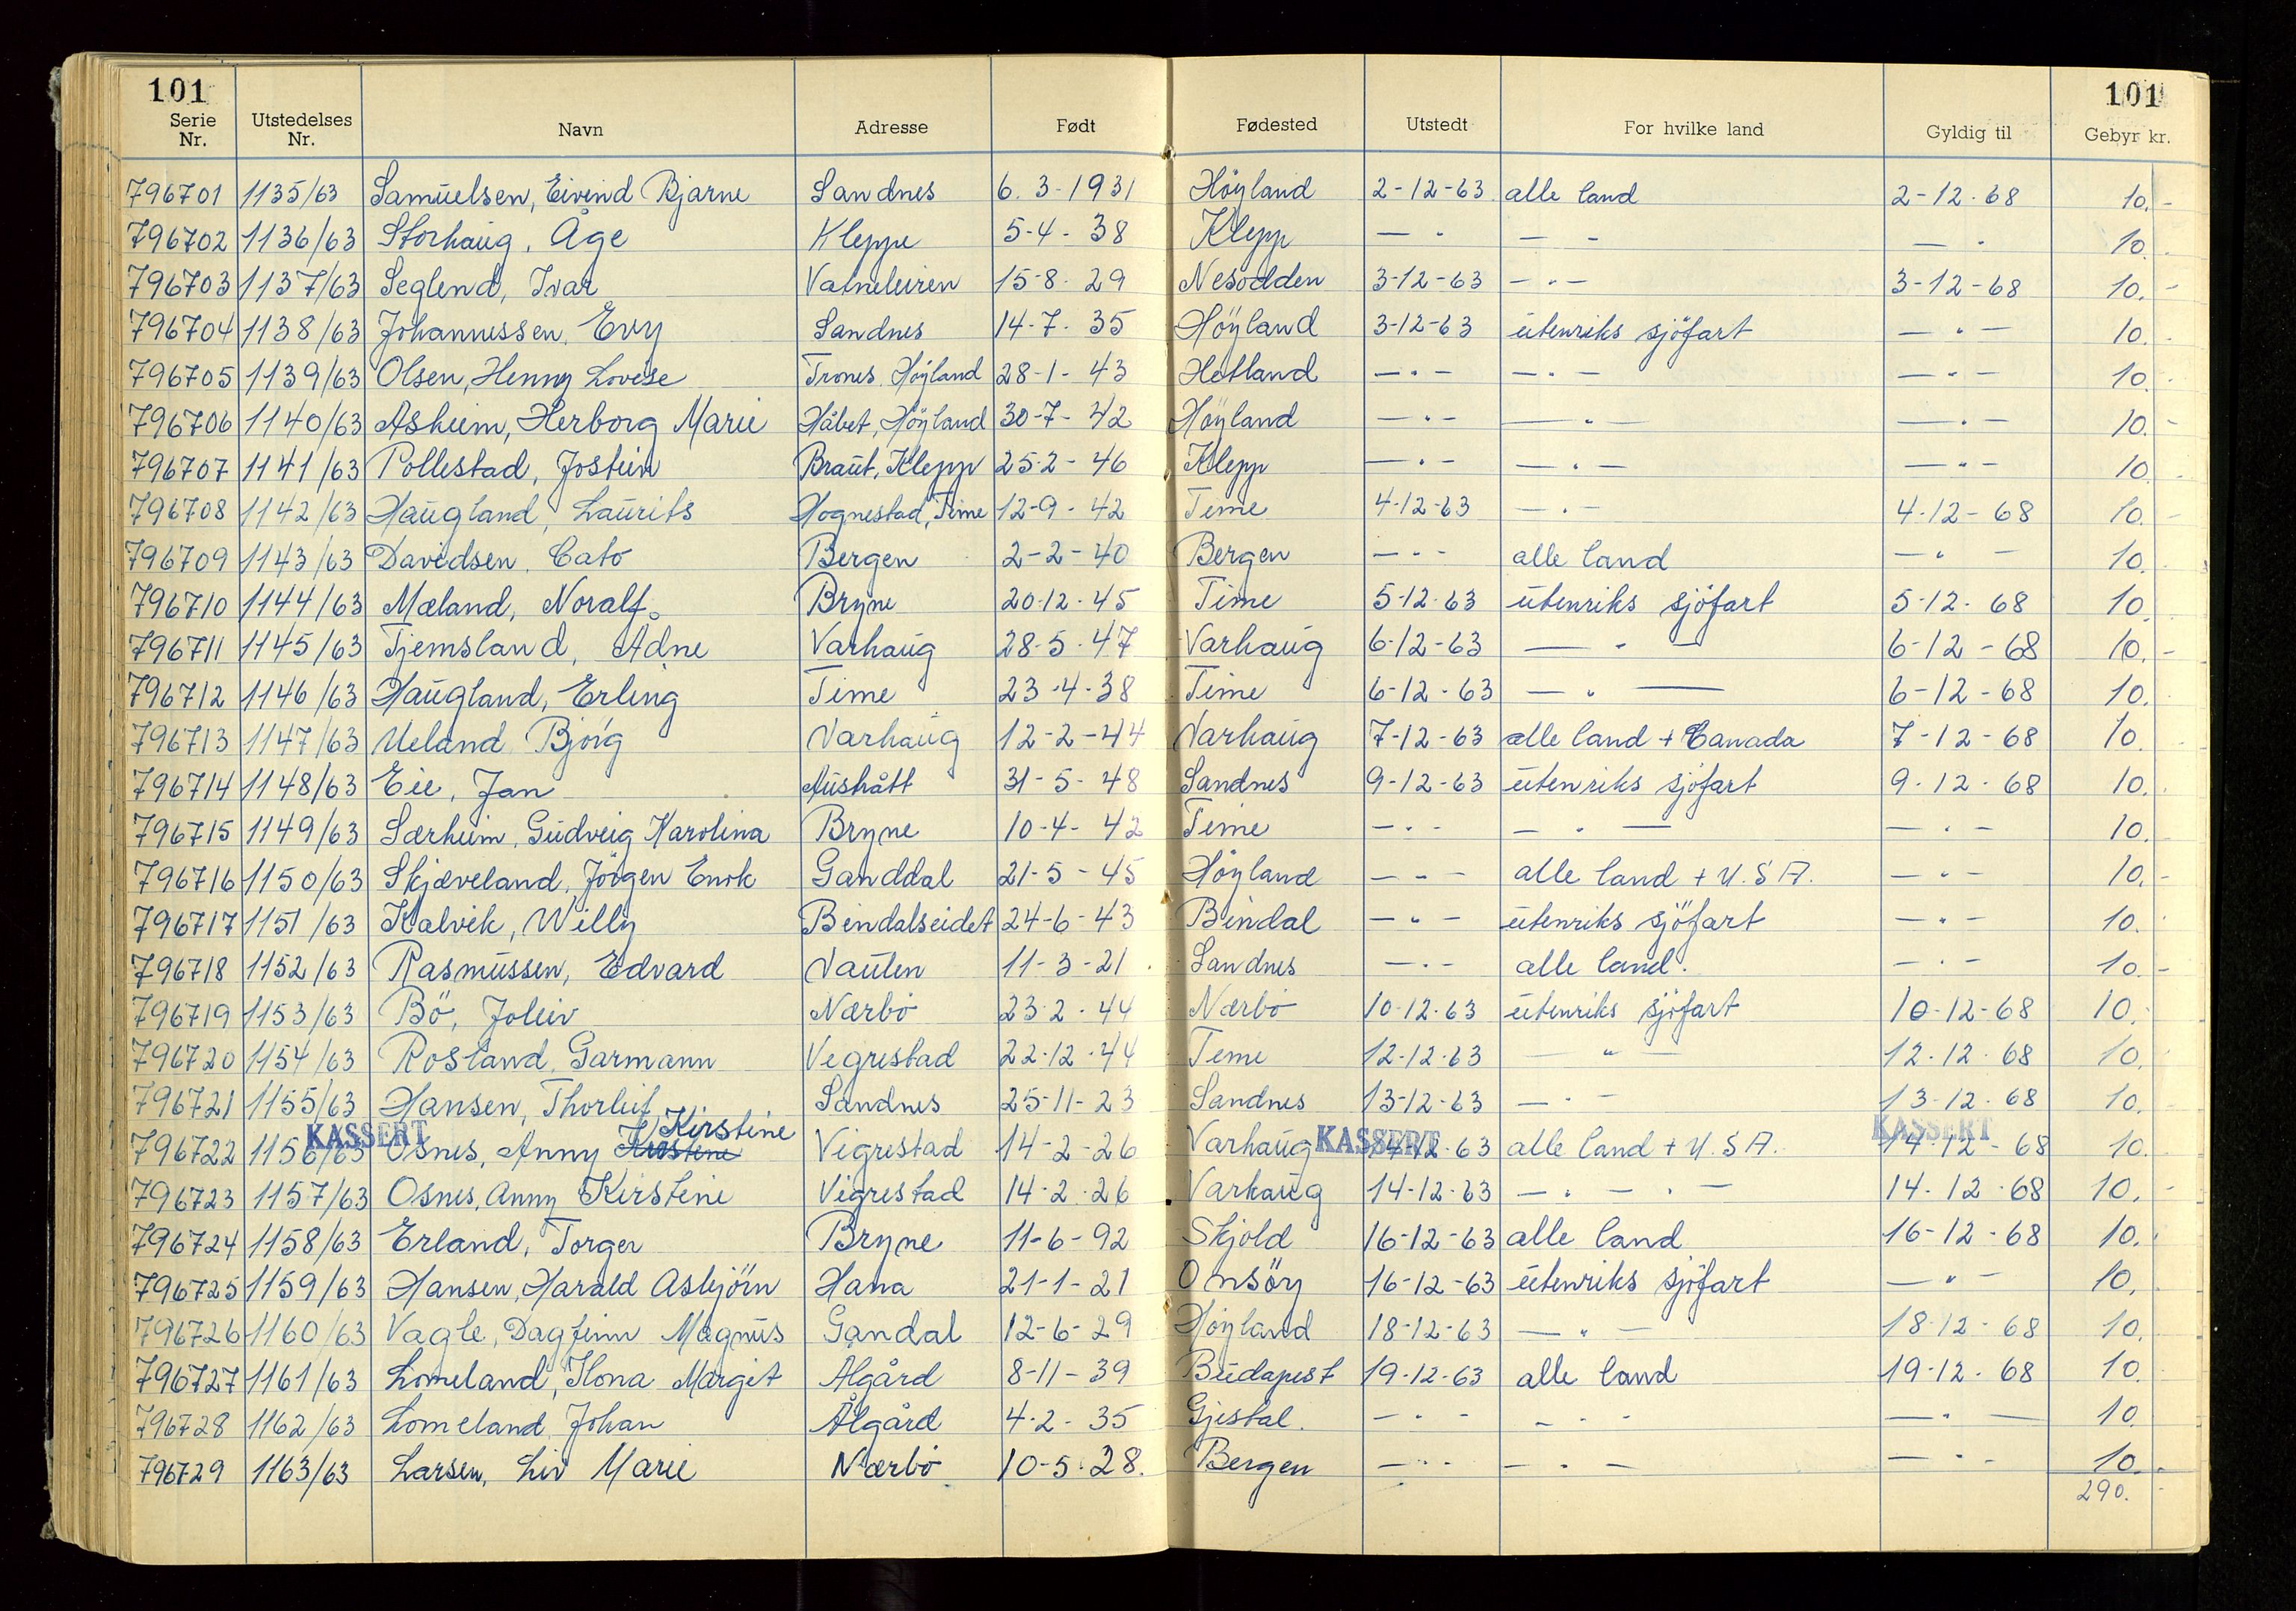 101 101
Serie Nr. Utstedelses Nr. Navn Adresse Født Fødested Utstedt For hvilke land Gyldig til Gebyr kr.
796701 1135/63 Samuelsen, Eivind Bjarne Sandnes 6.3-1931 Höyland 2-12-63 alle land 2-12-68 10.-
796702 1136/63 Storhaug, Åge Kleppe 5-4-38 Klepp — " — " — " 10.
796703 1137/63 Seglend, Ivar Vatneleiren 15-8-29 Nesodden 3-12-63 — " — 3-12-68 10.-
796704 1138/63 Johannessen, Evy Sandnes 14-7-35 Höyland 3-12-63 utenriks sjöfart — " — 10.
796705 1139/63 Olsen, Henny Lovise Trones, Höyland 28-1-43 Hetland — " — — " — — " — 10.
796706 1140/63 Asheim, Herborg Marie Håbet, Höyland 30-7-42 Höyland — " — — " — — " — 10.-
796707 1141/63 Pollestad, Jostein Braut, Klepp 25-2-46 Klepp — " — — " — — " — 10
796708 1142/63 Haugland, Laurits Hognestad, Time 12-9-42 Time 4-12-63 — " — 4-12-68 10.-
796709 1143/63 Davidsen, Cato Bergen 2-2-40 Bergen — " — alle land — " — 10.
796710 1144/63 Mæland, Noralf. Bryne 20-12-45 Time 5-12-63 utenriks sjöfart 5-12-68 10
796711 1145/63 Tjemsland, Ådne Varhaug 28-5-47 Varhaug 6-12-63 — " — 6-12-68 10.-
796712 1146/63 Haugland, Erling Time 23-4-38 Time 6-12-63 — " — 6-12-68 10.
796713 1147/63 Ueland Bjórg Varhaug 12-2-44 Varhaug 7-12-63 alle land + Canada 7-12-68 10.
796714 1148/63 Eie, Jan Austrått 31-5-48 Sandnes 9-12-63 utenriks sjöfart 9-12-68 10.
796715 1149/63 Særheim, Gudveig Karolina Bryne 10-4-42 Time — " — — " — — " — 10.
796716 1150/63 Skjæveland, Jörgen Enok Ganddal 21-5-45 Höyland — " — alle land + U.S.A. — " — 10.-
796717 1151/63 Kalvik, Willy Bindalseidet 24-6-43 Bindal — " — utenriks sjöfart — " — 10.
796718 1152/63 Rasmussen, Edvard Vaulen 11-3-21. Sandnes — " — alle land. — " — 10.-
796719 1153/63 Bö, Joleiv Nærbö 23-2-44 Nærbö 10-12-63 utenriks sjöfart 10-12-68 10.
796720 1154/63 Rosland, Garmann Vegrestad 22-12-44 Time 12-12-63 — " — 12-12-68 10.
796721 1155/63 Hansen, Thorleif Sandnes 25-11-23 Sandnes 13-12-63 — " — 13-12-68 10.
KASSERT Kirstine KASSERT KASSERT
796722 1156/63 Osnes, Anny Vigrestad 14-2-26 Varhaug 14-12-63 alle land + U.S.A. 14-12-68 10.
796723 1157/63 Osnes, Anny Kirstine Vigrestad 14-2-26 Varhaug 14-12-63 — " — " — 14-12-68 10.-
796724 1158/63 Erland, Torger Bryne 11-6-92 Skjold 16-12-63 alle land 16-12-68 10.
796725 1159/63 Hansen, Harald Asbjörn Hana 21-1-21 Onsöy 16-12-63 utenriks sjöfart — " — 10.
796726 1160/63 Vagle, Dagfinn Magnus Gandal 12-6-29 Höyland 18-12-63 — " — 18-12-68 10.
796727 1161/63 Lomeland, Ilona Margit Ålgård 8-11-39 Budapest 19-12-63 alle land 19-12-68 10.
796728 1162/63 Lomeland, Johan Ålgård 4-2-35 Gjestal. — " — — " — — " — 10.
796729 1163/63 Larsen, Liv Marie Nærbö 10-5-28. Bergen — " — — " — — " — 10.-
290.-